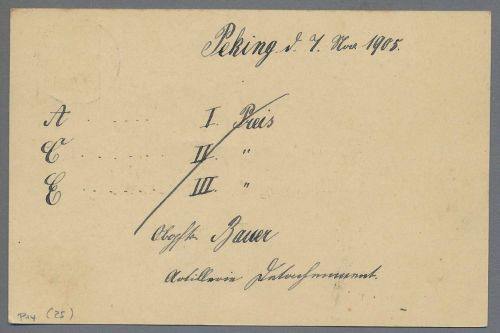 Peking d. 7. Nov. 1905.
A ........ I. Preis
C ........ II. "
E ........ III. "
Obgfr. Bauer
Artillerie Detachement.
P14 (25)